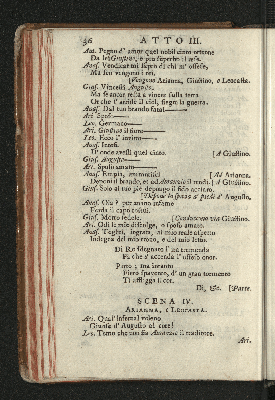 36 ATTO III.
Ana. Pegno d' amor quel nobil cinto ottenne
Da lei Giustino; e più superbo il rese.
Anas. Vendicar mi saprò di chi m' offese.
Ma sen vengono i rei.
[Vengono Arianna, Giustino, e Leocasta.
Gius. Vincesti Augusto.
Ma se ancor resta a vincer sulla terra
Or che t' arride il ciel, siegui la guerra.
Anas. Dal tuo brando fatal——
Ari. Sposo——
Leo. Germano——
Ari. Giustino il forte——
Leo. Ecco l' invitto——
Anas. Intesi.
Ti' onde avesti quel cinto. [A Giustino.
Gius. Augusto——
Ari. Sposo amato——
Anas. Empia, ammutisci [Ad Arianna.
Deponi il brando, et ad Amanzio il rendi. [A Giustino.
Gius. Solo al tuo piè depongo il fido acciaro.
[Depone la spada a' piedi d' Augusto,
Anas. Olà? per mano infame
Perda il capo costui.
Gius. Morrò fedele. [Conducono via Giustino.
Ari. Odi le mie discolpe, o sposo amato.
Anas. Togliti, ingrata, al mio reale aspetto
Indegna del mio trono, e del mio letto.
Di Re sdegnato l' ira tremenda
Fa che s' accenda l' offeso onor.
Parto; ma intanto
Fiero spavento, d' un gran tormento
Ti affligga il cor.
Di, &c. [Parte.
SCENA IV.
ARIANNA, e LEOCASTA.
Ari. Qual' infettal veleno
Giunse d' Augusto al core!
Leo. Temo che non sia Amanzio il traditore.
Ari.